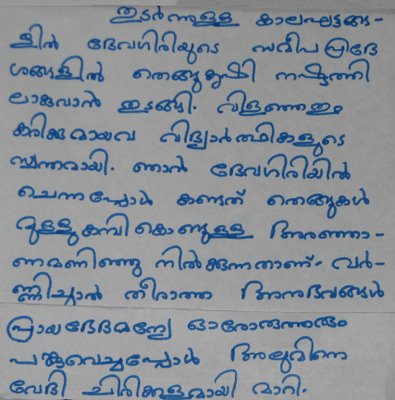 തുടർന്നുള്ള കാലഘട്ടങ്ങ-
ളിൽ ദേവഗിരിയുടെ സമീപ പ്രദേ
ശങ്ങളിൽ തെങ്ങുകൃഷി നഷ്ടത്തി
ലാകുവാൻ തുടങ്ങി. വിളഞ്ഞതും
കരിക്കുമായവ വിദ്യാർത്ഥികളുടെ
സ്വന്തമായി. ഞാൻ ദേവഗിരിയിൽ
ചെന്നപ്പോൾ കണ്ടത് തെങ്ങുകൾ
മുള്ളുകമ്പി കൊണ്ടുള്ള അരഞ്ഞാ-
ണമണിഞ്ഞു നിൽക്കുന്നതാണ്. വർ-
ണ്ണിച്ചാൽ തീരാത്ത അനുഭവങ്ങൾ
പ്രായഭേദമന്യേ ഓരോരുത്തരും
പങ്കുവെച്ചപ്പോൾ അലുമിനെ
വേദി ചിരിക്കളമായി മാറി.